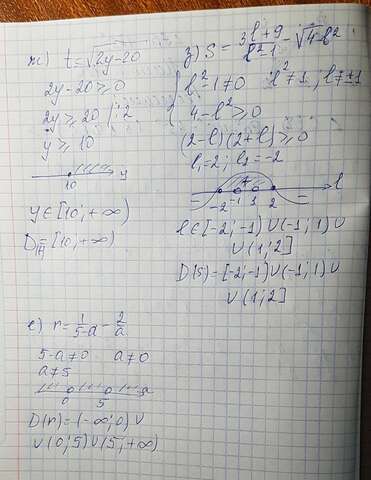 ж) t=√(2y-20)
2y-20≥0
2y≥20 |:2
y≥10
10 y
y∈[10;+∞)
D(t)=[10;+∞)
з) S = (3l+9)/(l²-1) - √(4-l²)
l²-1≠0 l²≠1; l≠±1
4-l²≥0
(2-l)(2+l)≥0
l₁=2; l₂=-2
- + -
-2 -1 1 2 l
l∈[-2;-1)∪(-1;1)∪
∪(1;2]
D(s)=[-2;-1)∪(-1;1)∪
∪(1;2]
е) r = 1/(5-a) - 2/a
5-a≠0 a≠0
a≠5
0 5 a
D(r)=(-∞;0)∪
∪(0;5)∪(5;+∞)